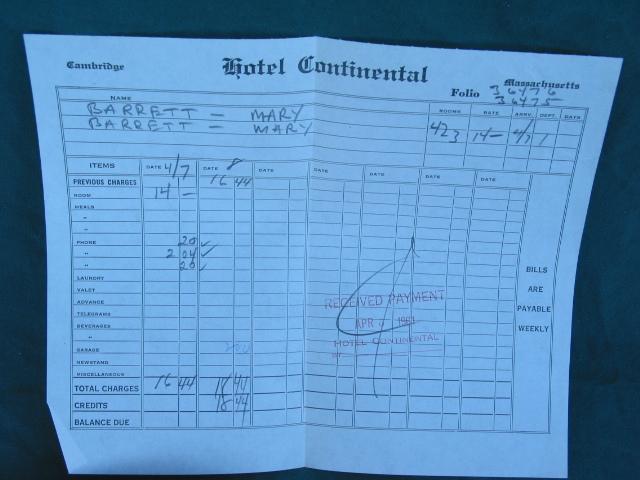 Cambridge Hotel Continental Massachusetts
Folio 36476
36475
NAME ROOMS RATE ARRV. DEPT. DAYS
BARRETT - MARY
BARRETT - MARY 423 14- 4/7
ITEMS DATE 4/7 DATE 8 DATE DATE DATE DATE DATE
PREVIOUS CHARGES 16 44
ROOM 14 -
MEALS
"
"
PHONE 20
" 2 04
" 20
LAUNDRY
VALET
ADVANCE
TELEGRAMS
BEVERAGES
"
GARAGE
NEWSTAND
MISCELLANEOUS
TOTAL CHARGES 16 44 18 44
CREDITS 18 44
BALANCE DUE
BILLS
ARE
PAYABLE
WEEKLY
RECEIVED PAYMENT
APR
HOTEL CONTINENTAL
BY